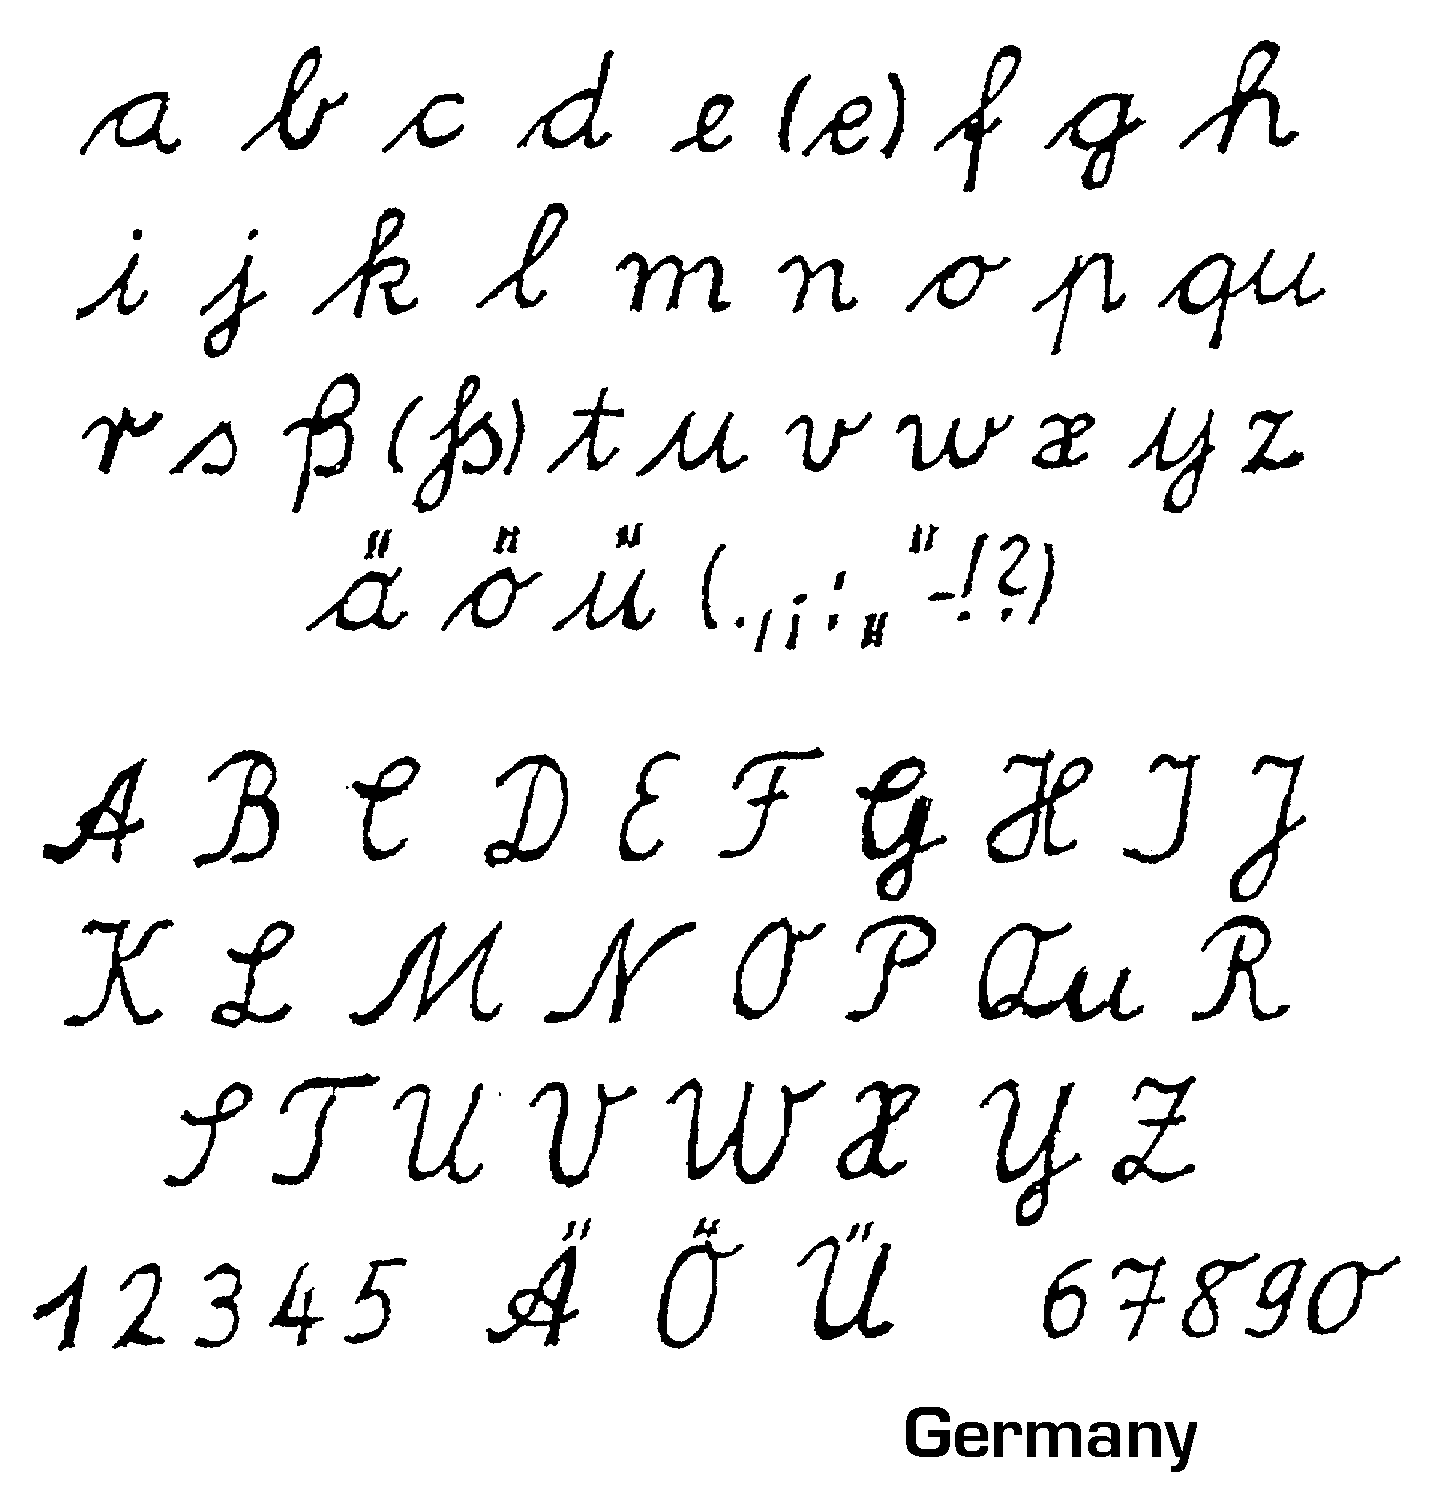 a b c d e (e) f g h
i j k l m n o p qu
r s ß (ß) t u v w x y z
ä ö ü (., ; : „ " - ! ?)
A B C D E F G H I J
K L M N O P Qu R
S T U V W X Y Z
1 2 3 4 5 Ä Ö Ü 6 7 8 9 0
Germany